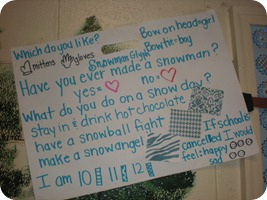 Which do you like?
mittens gloves
Snowman Glyph
Bow on head=girl
Bowtie=boy
Have you ever made a snowman?
yes= no=
What do you do on a snow day?
stay in & drink hot chocolate
have a snowball fight
make a snow angel
If school's
cancelled I would
feel: happy
sad
I am 10 11 12